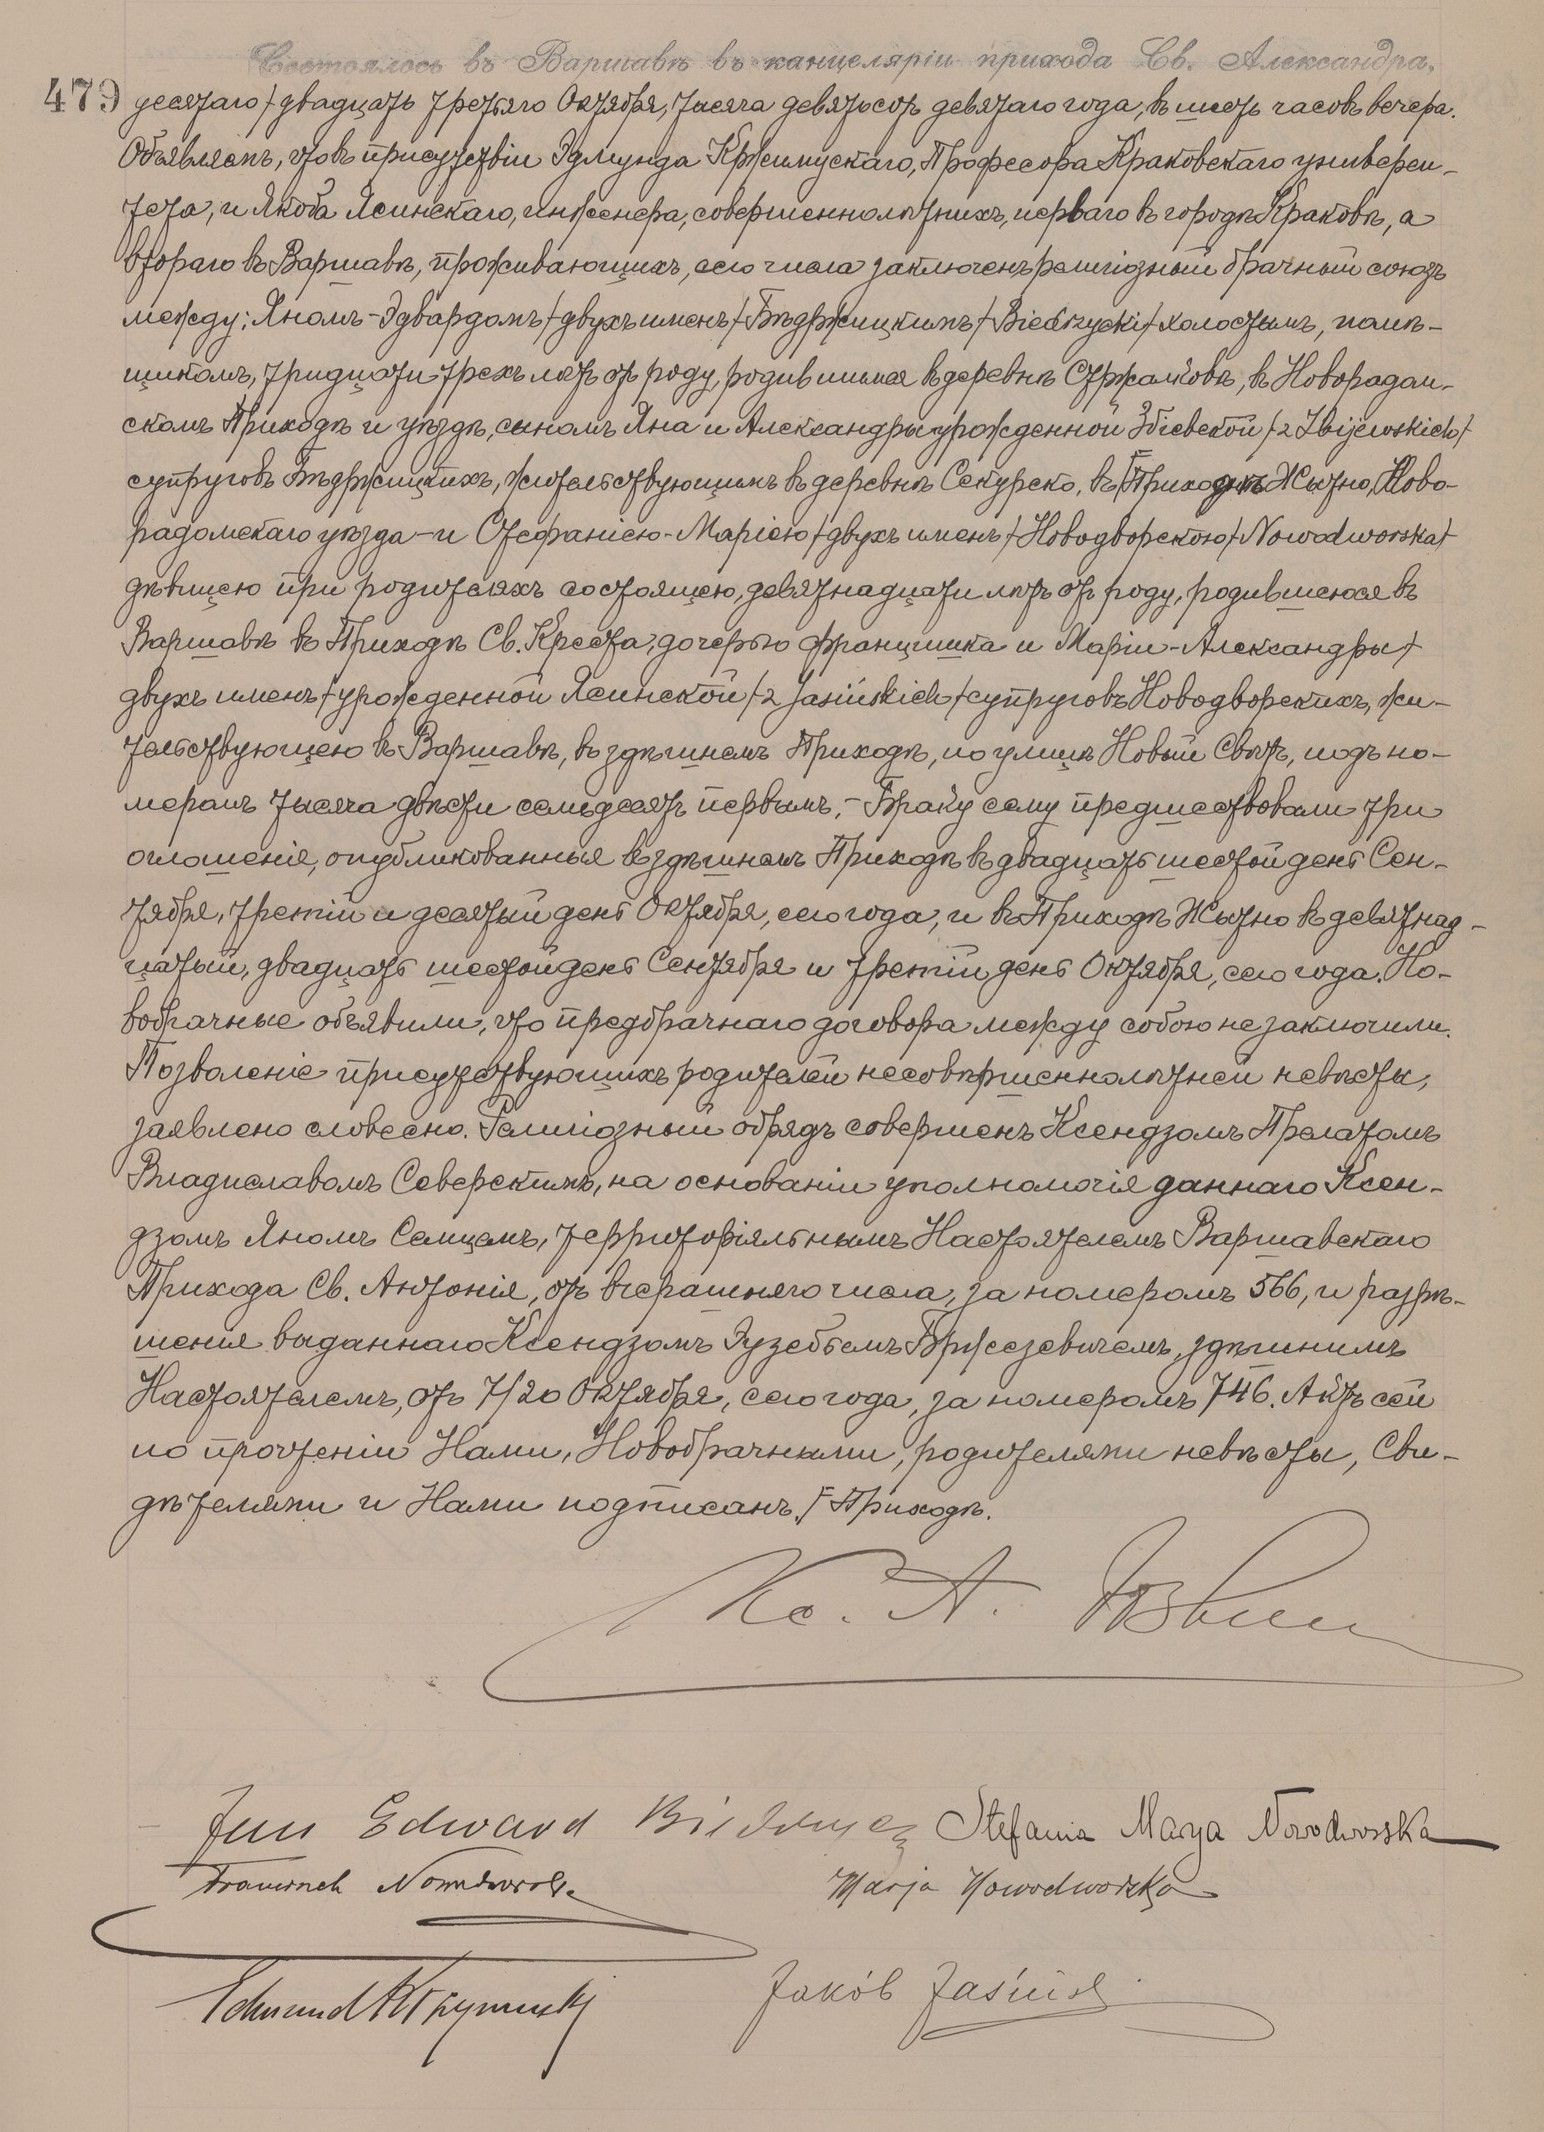 Состоялось въ Варшавѣ въ канцеляріи прихода Св. Александра,
479 десятаго/двадцать третьяго Октября, тысяча девятьсотъ девятаго года, въ шесть часовъ вечера.
Объявляемъ, что въ присутствіи Эдмунда Кржимускаго, Профессора Краковскаго универси-
тета, и Якоба Ясинскаго, инженера, совершеннолѣтнихъ, перваго въ городѣ Краковѣ, а
втораго въ Варшавѣ, проживающихъ, сего числа заключенъ религіозный брачный союзъ
между: Яномъ-Эдвардомъ/двухъ именъ/Бѣдржицкимъ/Biedrzycki/холостымъ, помѣ-
щикомъ, тридцати трехъ лѣтъ отъ роду, родившимся въ деревнѣ Стржалковѣ, въ Новорадом-
скомъ Приходѣ и уѣздѣ, сыномъ Яна и Александры урожденной Збіевской/z Zbijewskich/
супруговъ Бѣдржицкихъ, жительствующимъ въ деревнѣ Секурско, въ Приходѣ Жытно, Ново-
радомскаго уѣзда - и Стефаніею-Маріею/двухъ именъ/Новодворскою/Nowodworska/
дѣвицею при родителяхъ состоящею, девятнадцати лѣтъ отъ роду, родившеюся въ
Варшавѣ въ Приходѣ Св. Креста, дочерью Францишка и Маріи-Александры/
двухъ именъ/урожденной Ясинской/z Jasińskich/супруговъ Новодворскихъ, жи-
тельствующею въ Варшавѣ, въ здѣшнемъ Приходѣ, по улицѣ Новый Свѣтъ, подъ но-
меромъ тысяча двѣсти семьдесятъ первымъ. - Браку сему предшествовали три
оглошенія, опубликованныя въ здѣшнемъ Приходѣ въ двадцать шестой день Сен-
тября, третій и десятый день Октября, сего года, и въ Приходѣ Жытно въ девятнад-
цатый, двадцать шестой день Сентября и третій день Октября, сего года. Но-
вобрачные объявили, что предбрачнаго договора между собою не заключили.
Позволеніе присутствующихъ родителей несовѣршеннолѣтней невѣсты,
заявлено словесно. Религіозный обрядъ совершенъ Ксендзомъ Прелатомъ
Владиславомъ Северскимъ, на основаніи уполномочія даннаго Ксен-
дзомъ Яномъ Семцемъ, территоріяльнымъ Настоятелемъ Варшавскаго
Прихода Св. Антонія, отъ вчерашняго числа, за номеромъ 566, и разрѣ-
шенія выданнаго Ксендзомъ Эузебьемъ Бржезевичемъ, здѣшнимъ
Настоятелемъ, отъ 7/20 Октября, сего года, за номеромъ 746. Актъ сей
по прочтеніи Нами, Новобрачными, родителями невѣсты, Сви-
дѣтелями и Нами подписанъ./Приходѣ.
Кс. А.
Jan Edward Biedrzycki Stefania Marya Nowodworska
Franciszek Nowodworski Marja Nowodworska
Edmund Krzymuski Jakób Jasiński